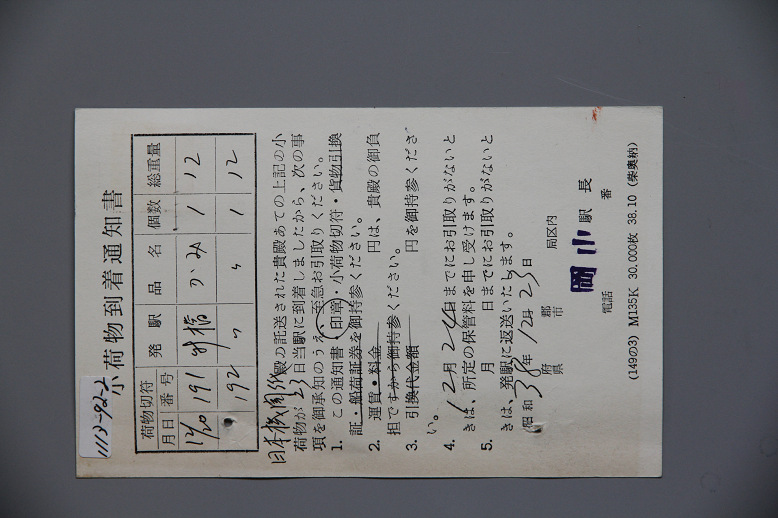 1113-92-2
小荷物到着通知書
荷物切符 発駅 品名 個数 総重量
月日 番号
12/20 191 かみ 1 12
192 〃 〃 1 12
日本機関紙 殿の託送された貴殿あての上記の小
荷物が23日当駅に到着しましたから、次の事
項を御承知のうえ、至急お引取りください。
1. この通知書・印章・小荷物切符・貨物引換
証・船荷証券を御持参ください。
2. 運賃・料金 円は、貴殿の御負
担ですから御持参ください。
3. 引換代金額 円を御持参くださ
い。
4. 12月24日までにお引取りがないと
きは、所定の保管料を申し受けます。
5. 月 日までにお引取りがないと
きは、発駅に返送いたします。
昭和38年12月23日
府県 郡市 局区内
岡小駅長
電話 番
(149の3) M135K 30,000枚 38.10 (柴奥納)